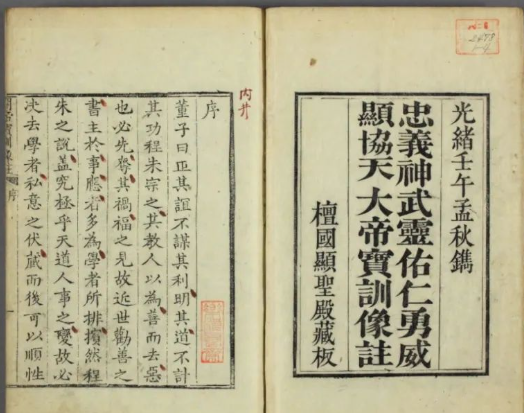 光緒壬午孟秋鐫
忠義神武靈佑仁勇威
顯協天大帝寶訓像註
檀國顯聖殿藏板
序
董子曰正其誼不謀其利明其道不計
其功程朱宗之其教人以為善而去惡
也必先其禍福之見故近世勸善之
書主於事應者多為學者所排擯然程
朱之說蓋究極乎天道人事之變故必
决去學者私意之伏藏而後可以順性